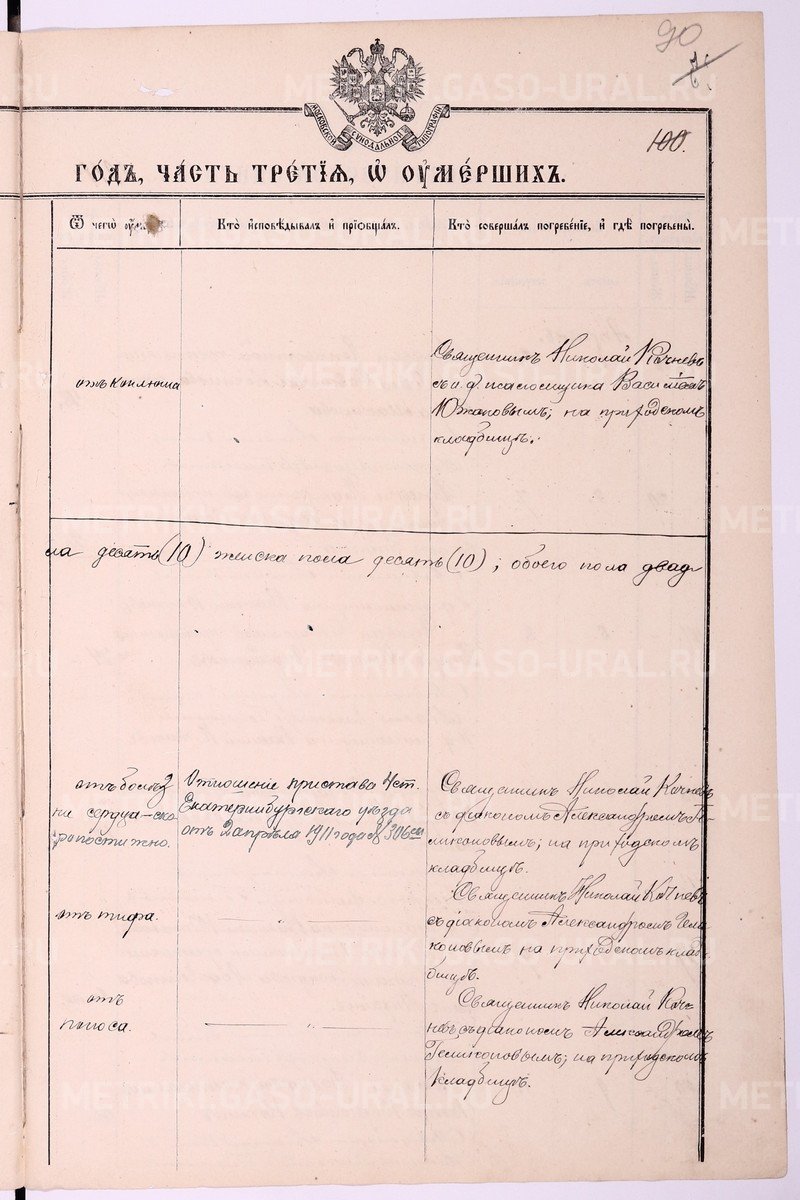 90
100.
МОСКОВСКОЙ СѴНОДАЛЬНОЙ ТИПОГРАФІИ
ГО́ДЪ, ЧА́СТЬ ТРЕ́ТІѦ, Ѡ҆ ОУ҆МЕ́РШИХЪ.
Ѿ чегѡ̀
Кто̀ и҆сповѣ́дывалъ и҆ прїѻбща́лъ.
Кто̀ соверша́лъ погребе́нїе, и҆ гдѣ̀ погребены̀.
отъ коклюша
Священникъ Николай Кочневъ
съ и. д. псаломщика
Южаковымъ; на приходскомъ
кладбищѣ.
ла десять (10) женска пола десять (10); обоего пола двад
отъ болѣз
ни сердца-ско
ропостижно.
Отношеніе пристава 4 ст.
Екатеринбургскаго уѣзда
отъ 2 апрѣля 1911 года № 306
Священникъ Николай Кочневъ
съ діакономъ Александромъ Ге
ликоновымъ; на приходскомъ
кладбищѣ.
отъ тифа.
— „ —
Священникъ Николай Кочневъ
съ діакономъ Александромъ Гели
коновымъ на приходскомъ клад
бищѣ.
отъ
поноса.
— „ —
Священникъ Николай Коч-
невъ съ діакономъ Александромъ
Геликоновымъ; на приходскомъ
кладбищѣ.
METRIKI.GASO-URAL.RU